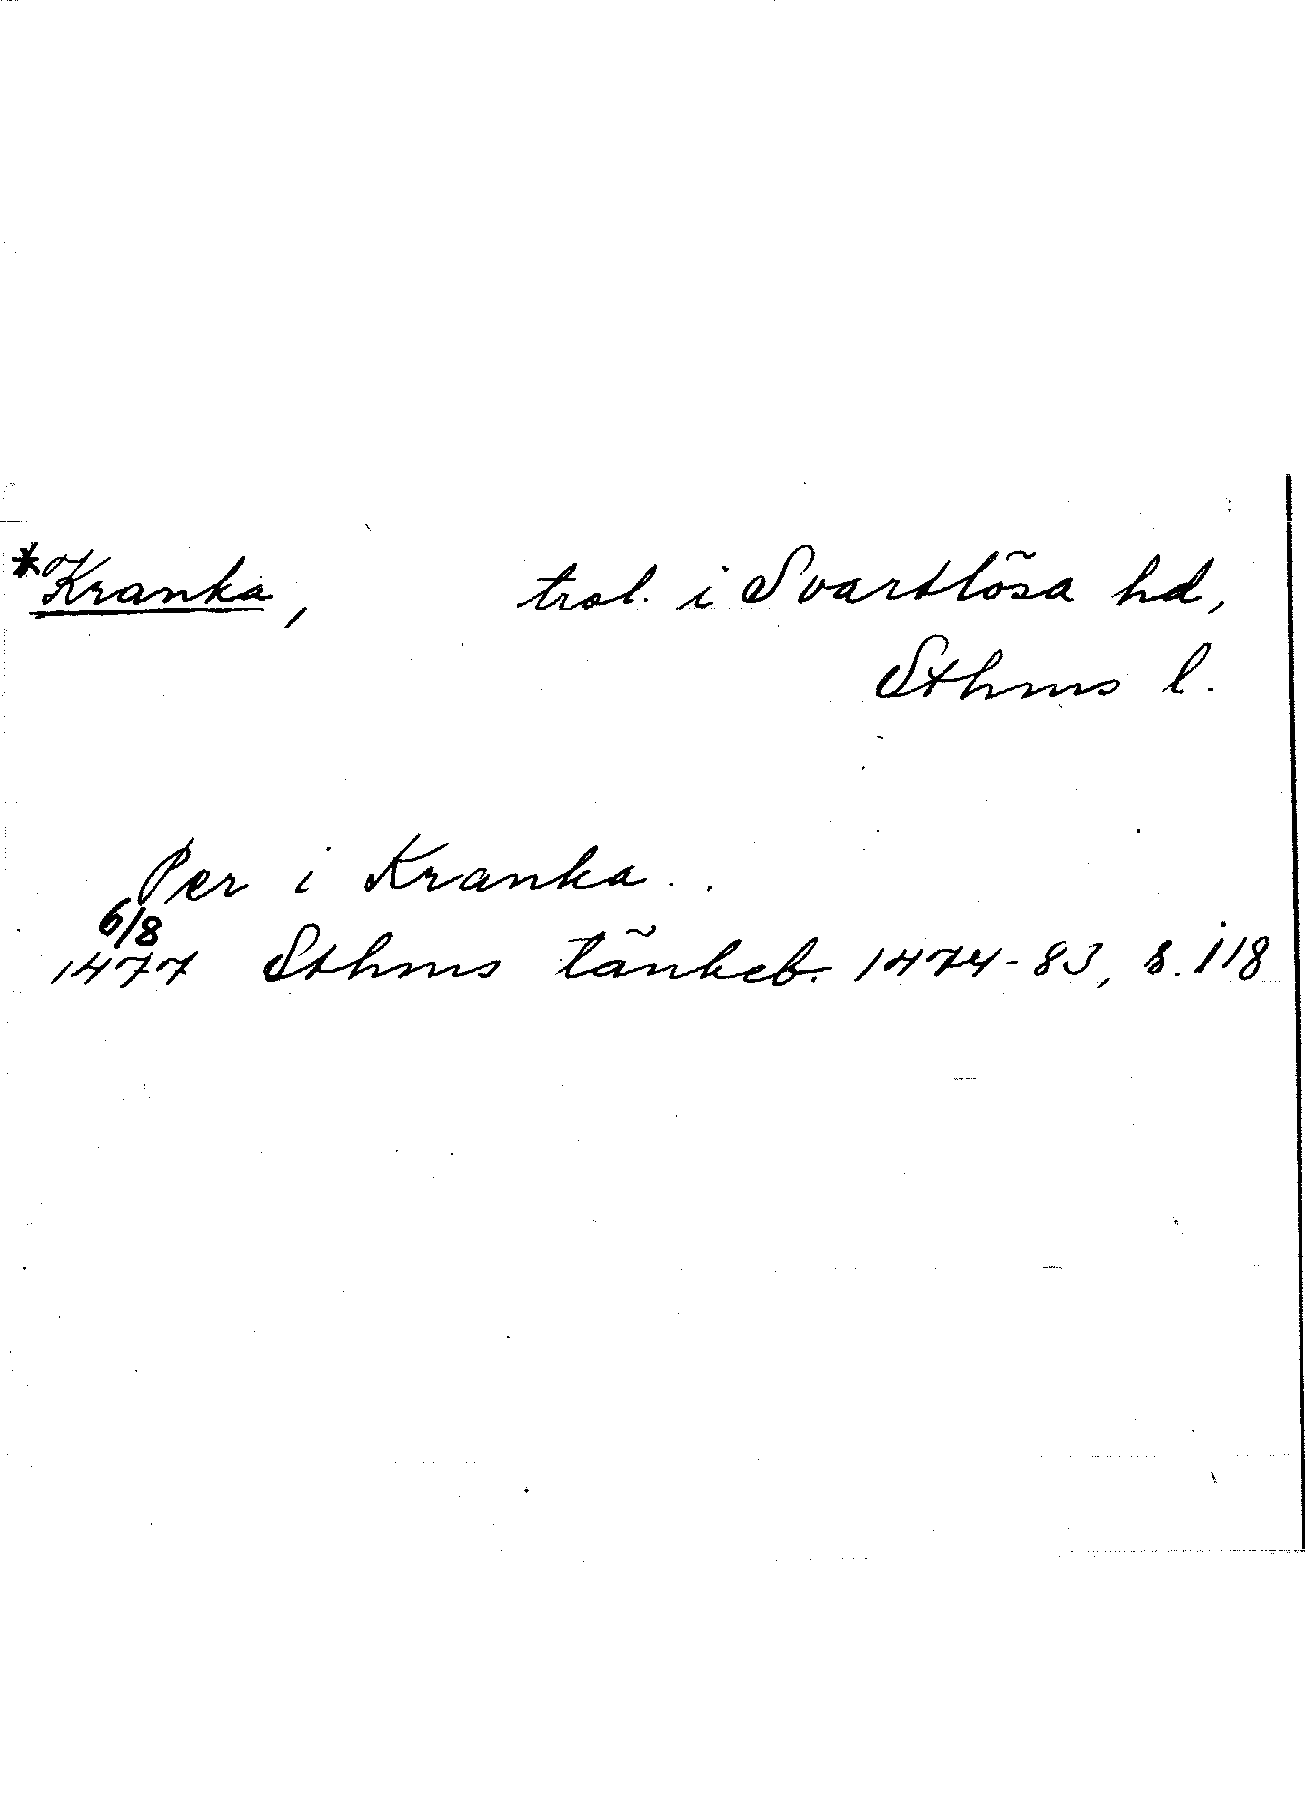 *Kranka, trol. i Svartlösa hd,
Sthms l.
Per i Kranka . .
6/8
1477 Sthms tänkeb. 1474-83, s. 118